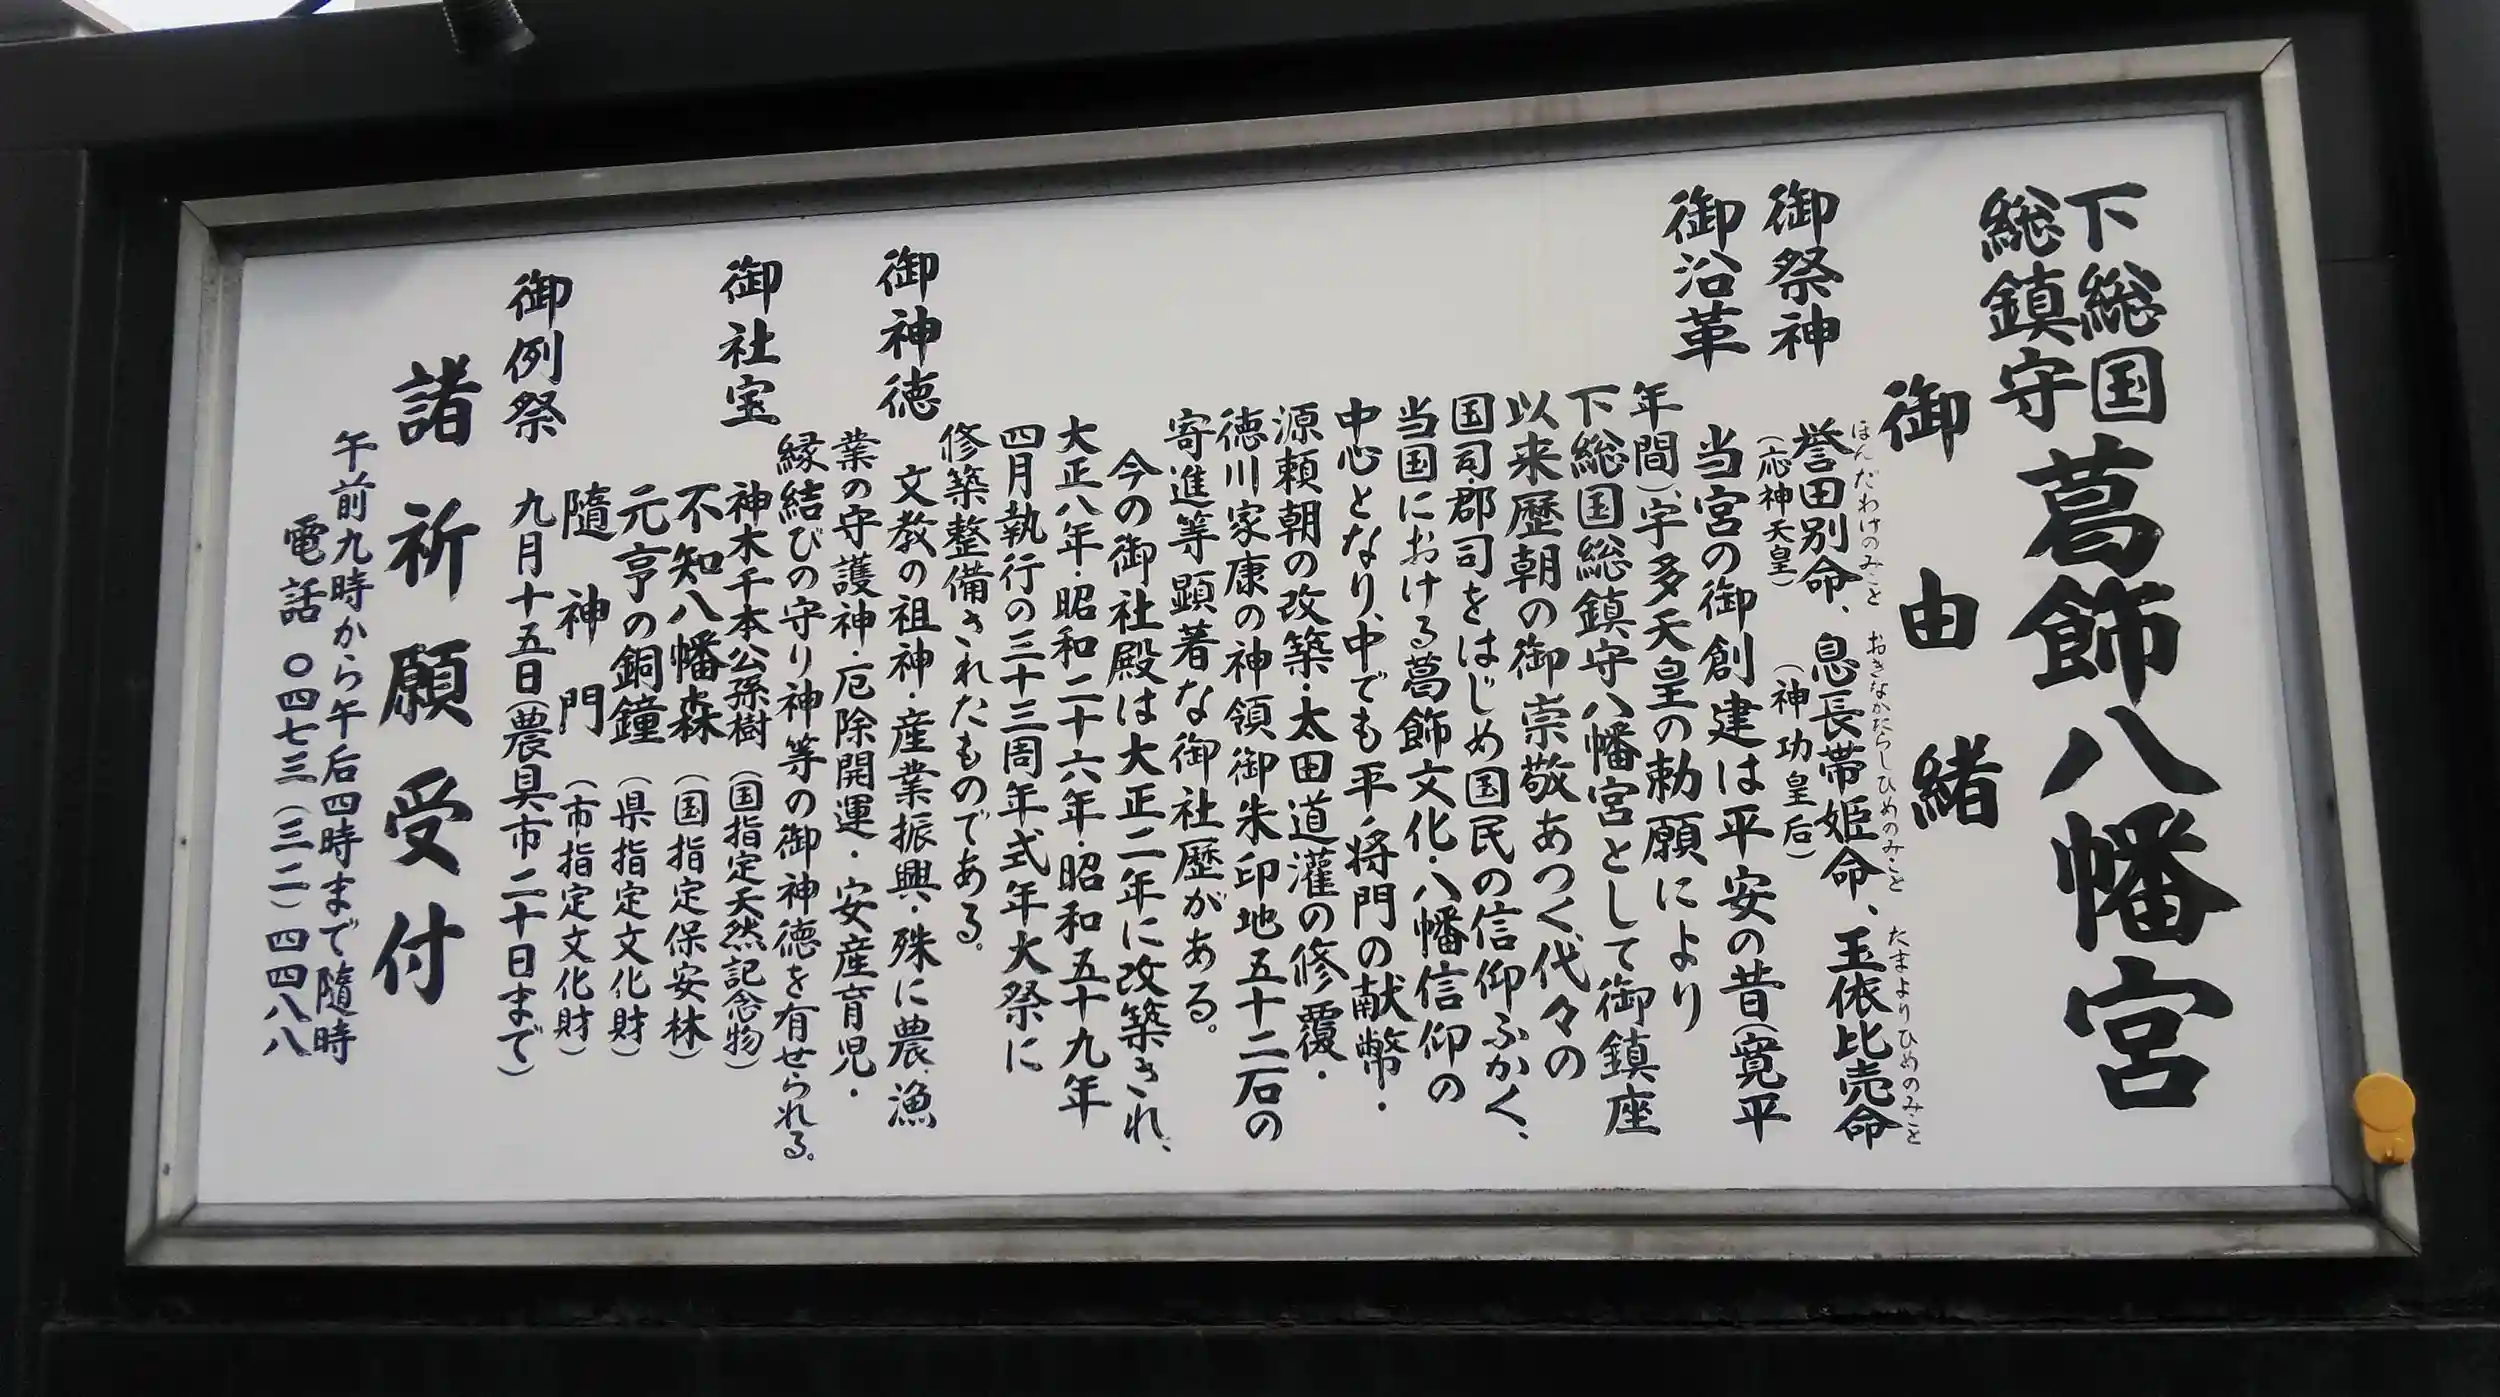 下総国
総鎮守
葛飾八幡宮
御由緒
御祭神
ほんだわけのみこと
おきながたらしひめのみこと
たまよりひめのみこと
誉田別命、息長帯姫命、玉依比売命
(応神天皇)
(神功皇后)
御沿革
当宮の御創建は平安の昔(寛平
年間)、宇多天皇の勅願により
下総国総鎮守八幡宮として御鎮座
以来歴朝の御崇敬あつく、代々の
国司・郡司をはじめ国民の信仰ふかく、
当国における葛飾文化・八幡信仰の
中心となり、中でも平ノ将門の献幣・
源頼朝の改築・太田道灌の修覆・
徳川家康の神領御朱印地五十二石の
寄進等顕著な御社歴がある。
今の御社殿は大正二年に改築され、
大正八年・昭和二十六年・昭和五十九年
四月執行の三十三周年式年大祭に
修築整備されたものである。
御神徳
文教の祖神・産業振興・殊に農、漁
業の守護神・厄除開運・安産育児・
縁結びの守り神等の御神徳を有せられる。
御社宝
神木千本公孫樹(国指定天然記念物)
不知八幡森(国指定保安林)
元亨の銅鐘(県指定文化財)
隨神門(市指定文化財)
御例祭
九月十五日(農具市二十日まで)
諸祈願受付
午前九時から午后四時まで隨時
電話 〇四七三(三二)四四八八